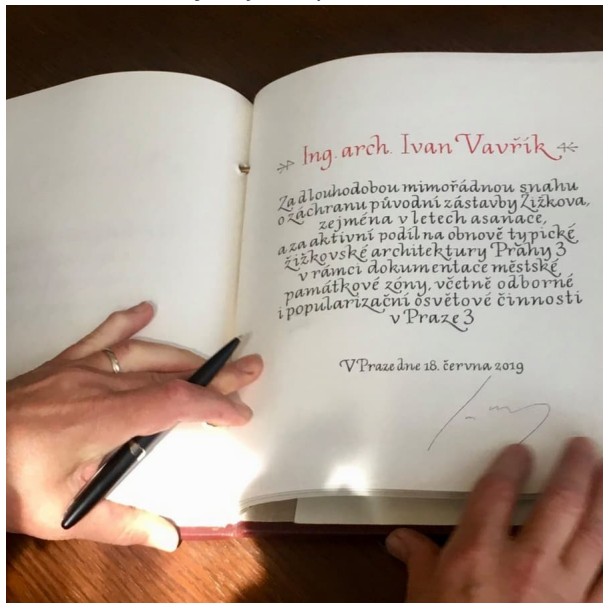 Ing. arch. Ivan Vavřík
Za dlouhodobou mimořádnou snahu
o záchranu původní zástavby Žižkova,
zejména v letech asanace,
a za aktivní podíl na obnově typické
žižkovské architektury Prahy 3
v rámci dokumentace městské
památkové zóny, včetně odborné
i popularizační osvětové činnosti
v Praze 3
V Praze dne 18. června 2019